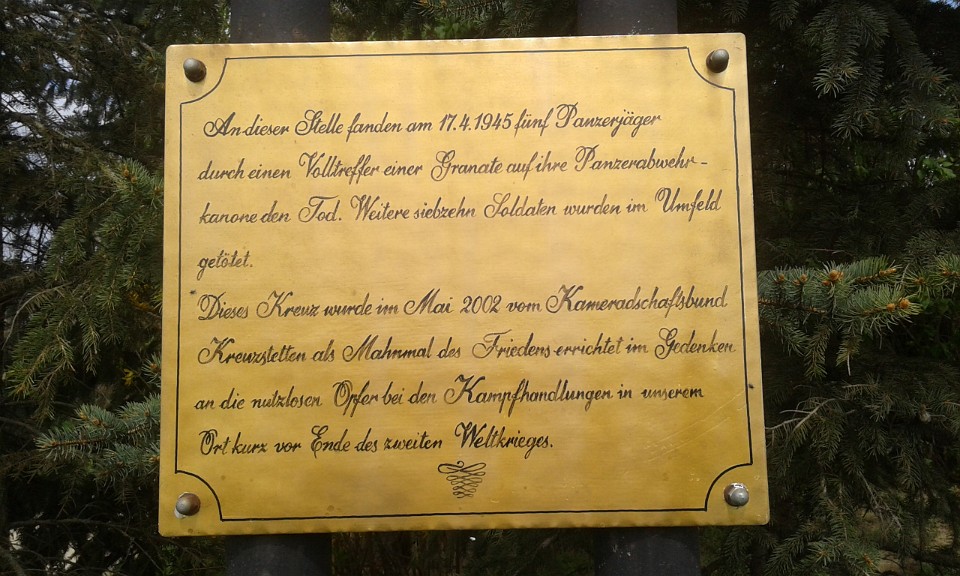 An dieser Stelle fanden am 17.4.1945 fünf Panzerjäger
durch einen Volltreffer einer Granate auf ihre Panzerabwehr-
kanone den Tod. Weitere siebzehn Soldaten wurden im Umfeld
getötet.
Dieses Kreuz wurde im Mai 2002 vom Kameradschaftsbund
Kreuzstetten als Mahnmal des Friedens errichtet im Gedenken
an die nutzlosen Opfer bei den Kampfhandlungen in unserem
Ort kurz vor Ende des zweiten Weltkrieges.